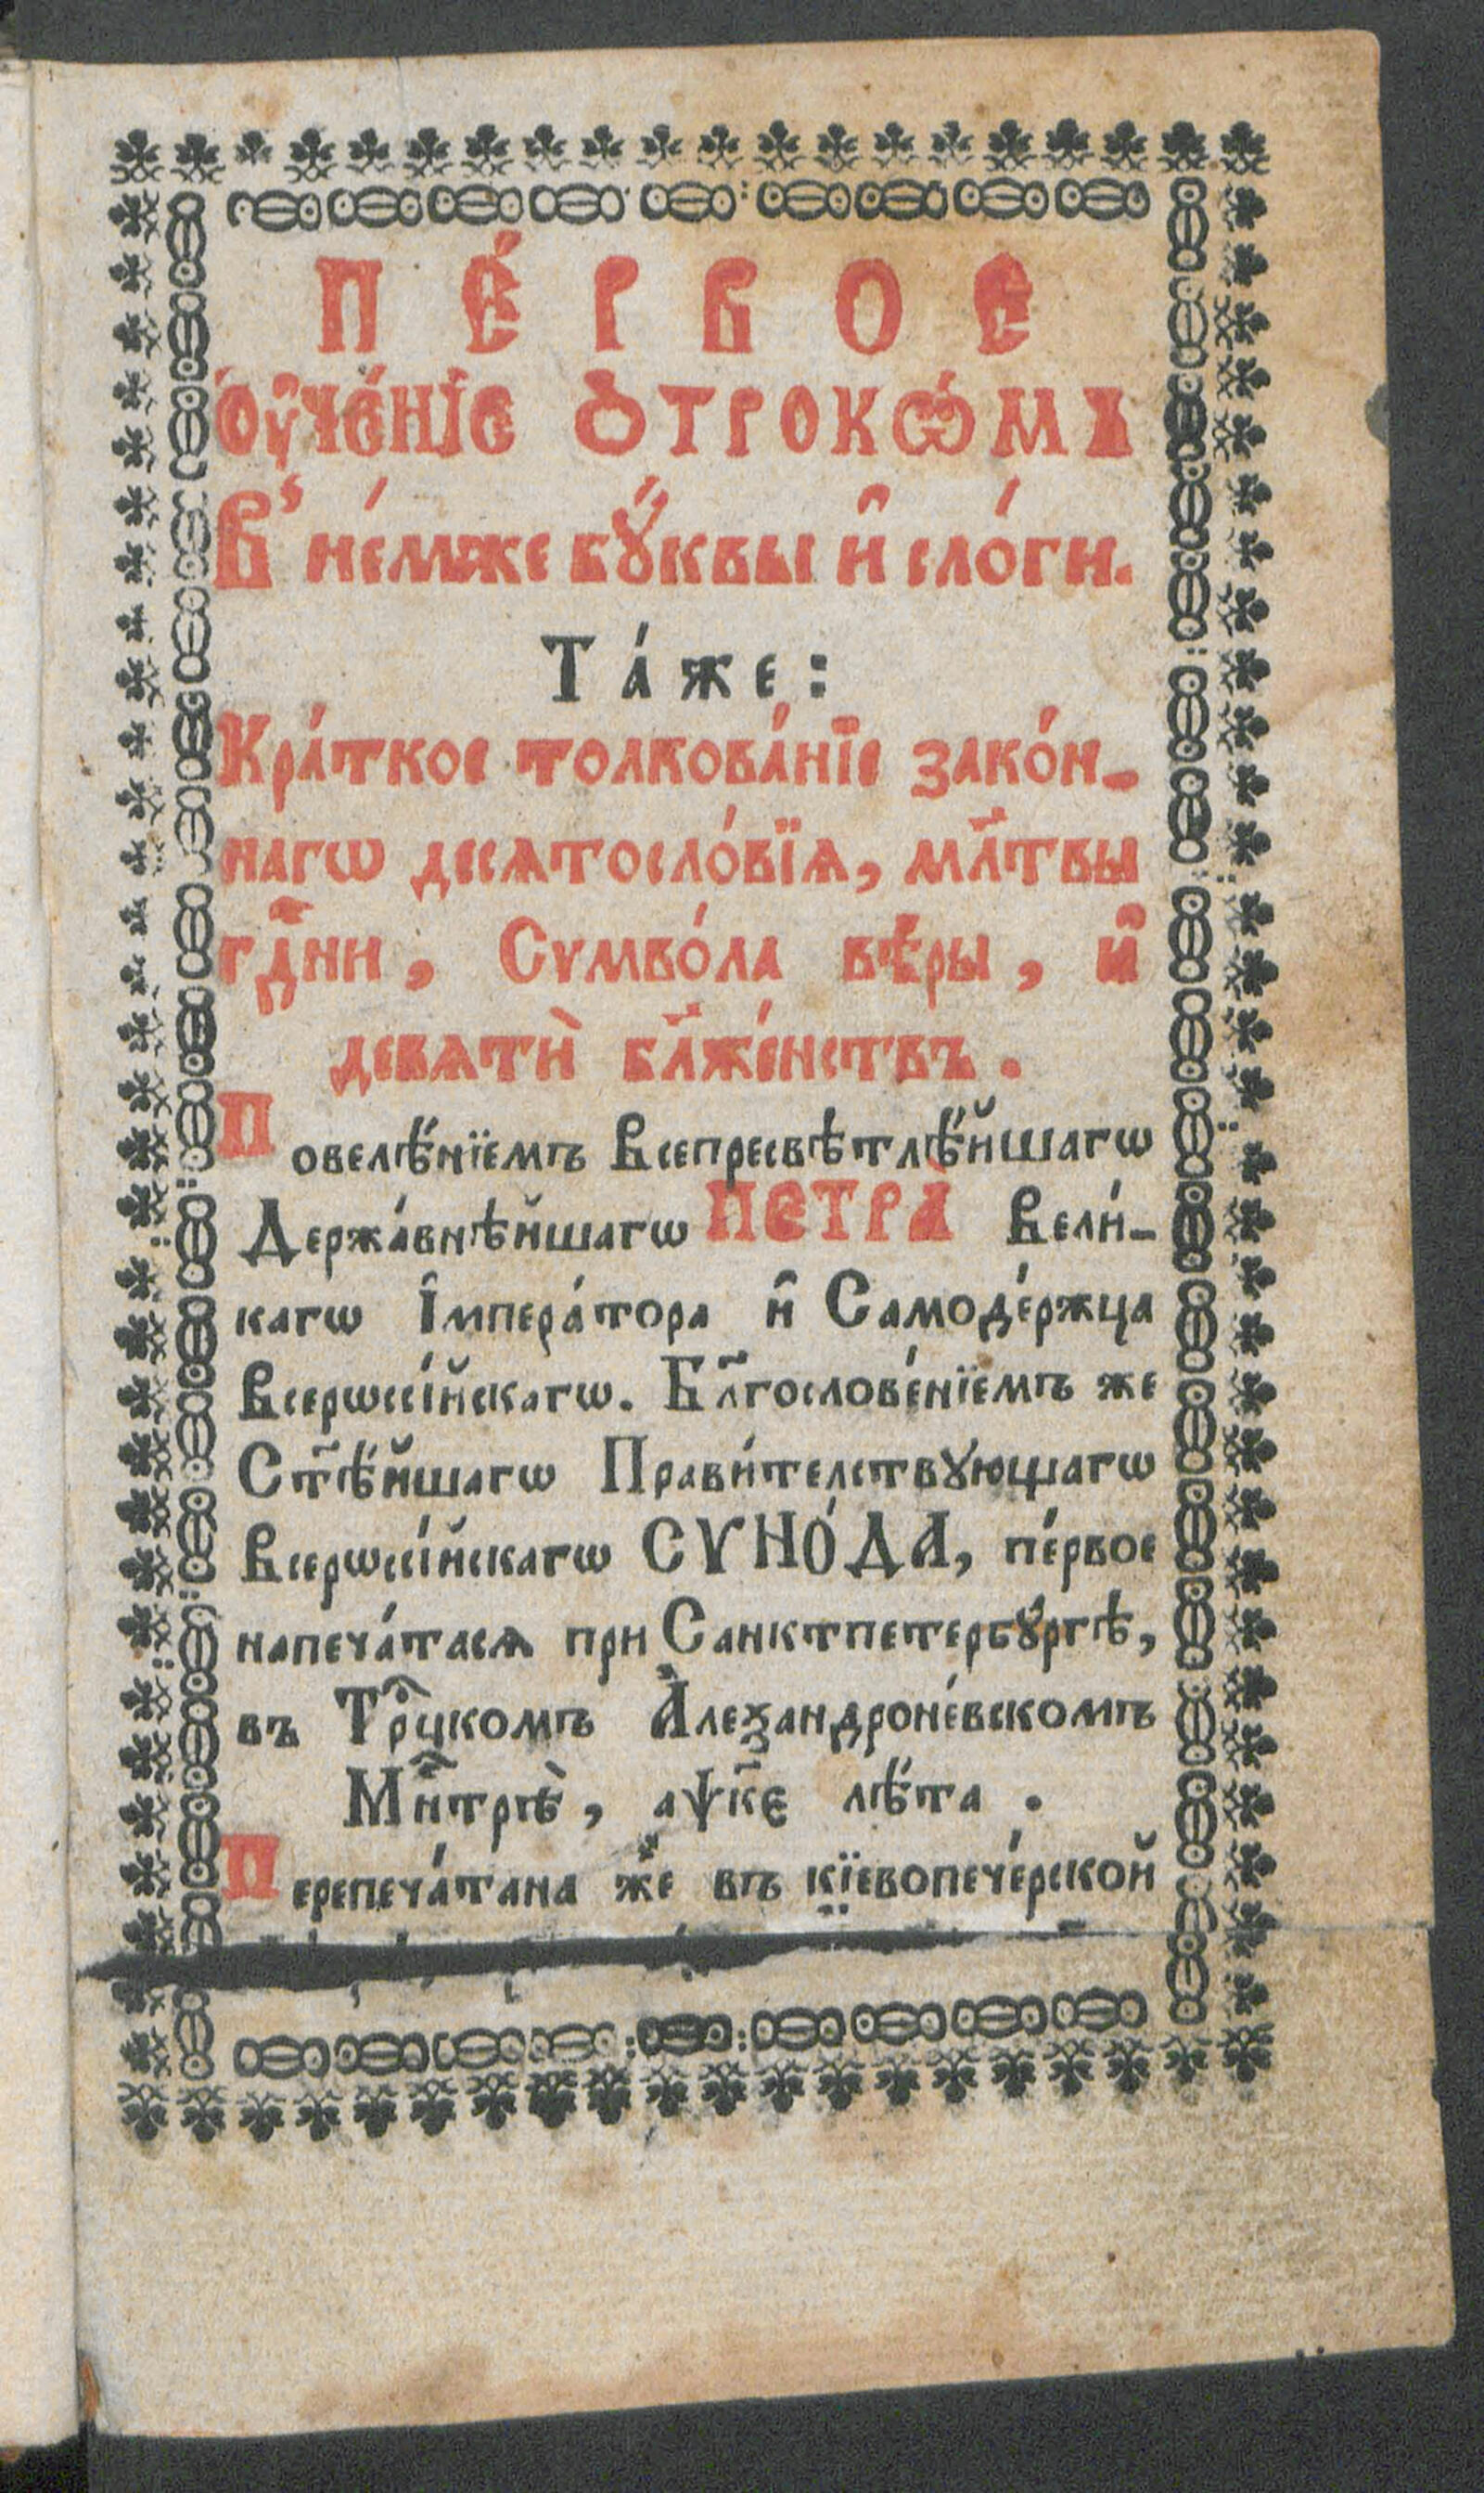 ПЕ́РВОЕ
ОУ҆ЧЕ́НІЕ ѺТРОКѠ́МЪ
В' не́мже бꙋ́квы и҆ сло́ги.
Та́же:
Кра́ткое толкова́нїе зако́н-
нагѡ десѧтосло́вїѧ, мл҃твы
гд҃ни, Сѵмво́ла вѣ́ры, и҆
девѧтѝ бл҃же́нствъ.
Повелѣ́нїемъ Всепресвѣтлѣ́йшагѡ
Держа́внѣйшагѡ ПЕТРА̀ Вели́-
кагѡ І҆мпера́тора и҆ Самоде́ржца
Всерѡссі́йскагѡ. Бл҃гослове́нїемъ же
Ст҃ѣ́йшагѡ Прави́телствꙋющагѡ
Всерѡссі́йскагѡ СѴНО́ДА, пе́рвое
напеча́тасѧ при Санктпетербꙋ́ргѣ,
въ Тр҇оцкомъ А҆леѯандроне́вскомъ
Мн҃трѣ̀, аѱк҃є лѣ́та.
Перепеча́тана же въ кїевопече́рской